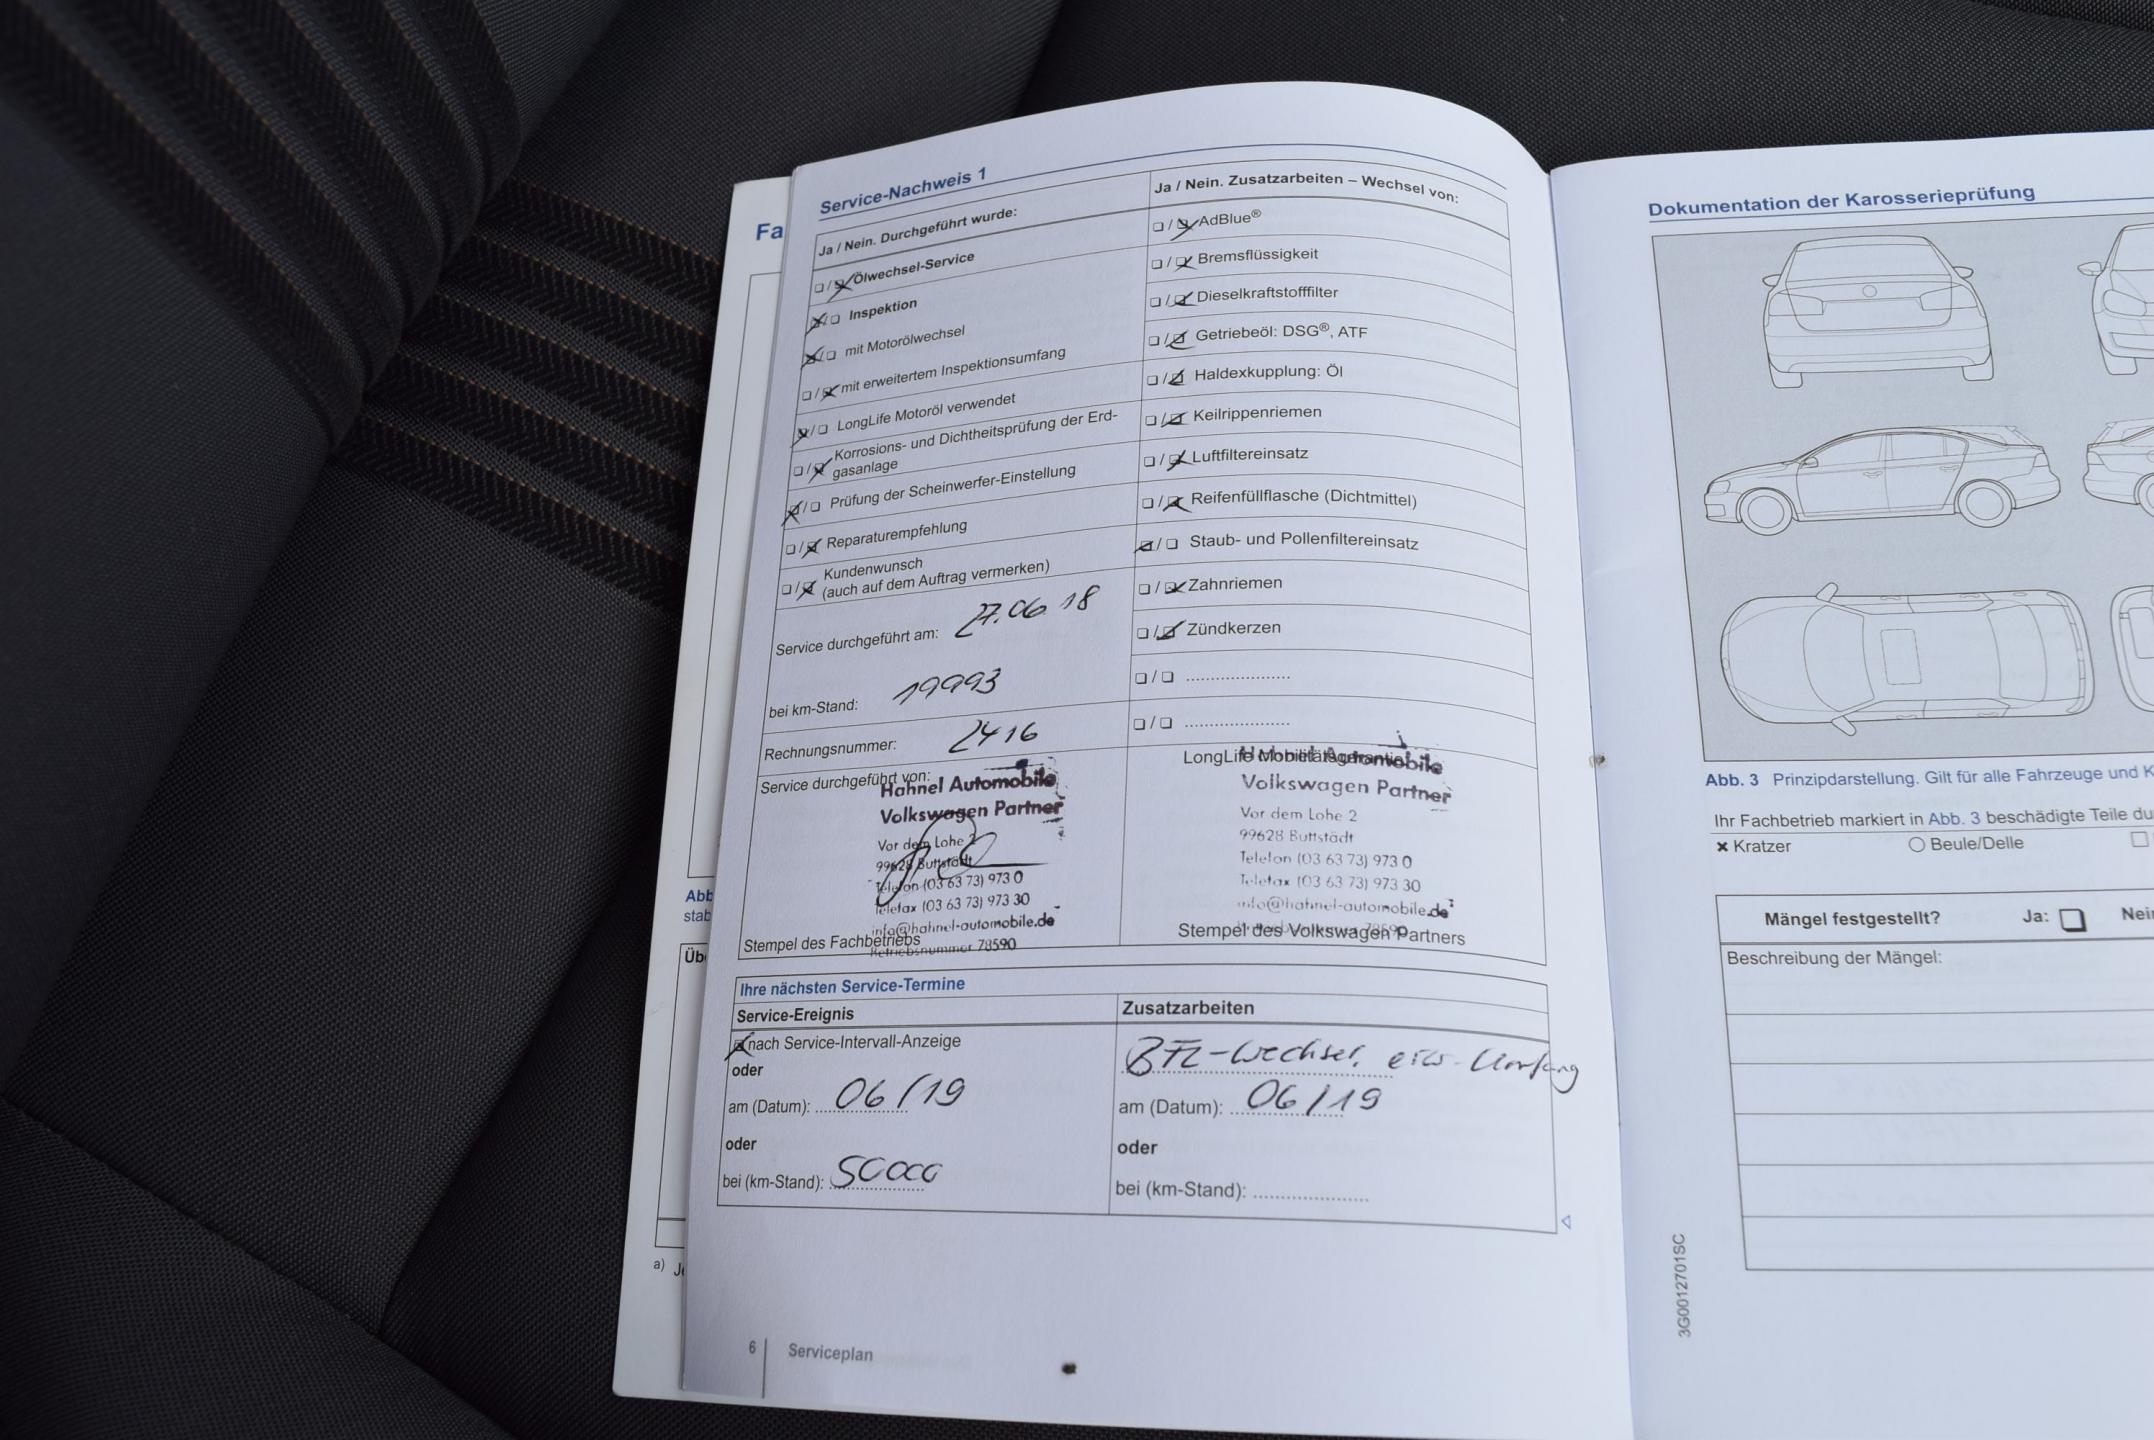 Fa
Service-Nachweis 1
Ja / Nein. Durchgeführt wurde:
Ölwechsel-Service
Inspektion
mit Motorölwechsel
mit erweitertem Inspektionsumfang
LongLife Motoröl verwendet
Korrosions- und Dichtheitsprüfung der Erd-
gasanlage
Prüfung der Scheinwerfer-Einstellung
Reparaturempfehlung
Kundenwunsch
(auch auf dem Auftrag vermerken)
Service durchgeführt am: 27.06.18
bei km-Stand: 19993
Rechnungsnummer: 2416
Service durchgeführt von:
Hahnel Automobile
Volkswagen Partner
Vor dem Lohe 2
99628 Buttstädt
Telefon (03 63 73) 973 0
Telefax (03 63 73) 973 30
info@hahnel-automobile.de
Betriebsnummer 78590
Stempel des Fachbetriebs
Ja / Nein. Zusatzarbeiten – Wechsel von:
AdBlue®
Bremsflüssigkeit
Dieselkraftstofffilter
Getriebeöl: DSG®, ATF
Haldexkupplung: Öl
Keilrippenriemen
Luftfiltereinsatz
Reifenfüllflasche (Dichtmittel)
Staub- und Pollenfiltereinsatz
Zahnriemen
Zündkerzen
LongLife Mobilitätsgarantie
Hahnel Automobile
Volkswagen Partner
Vor dem Lohe 2
99628 Buttstädt
Telefon (03 63 73) 973 0
Telefax (03 63 73) 973 30
info@hahnel-automobile.de
Stempel des Volkswagen Partners
Ihre nächsten Service-Termine
Service-Ereignis
nach Service-Intervall-Anzeige
oder
am (Datum): 06/19
oder
bei (km-Stand): 50000
Zusatzarbeiten
BFL-Wechsel, erw. Umfang
am (Datum): 06/19
oder
bei (km-Stand):
6 Serviceplan
Abb
stab
Üb
a)
Dokumentation der Karosserieprüfung
Abb. 3 Prinzipdarstellung. Gilt für alle Fahrzeuge und K
Ihr Fachbetrieb markiert in Abb. 3 beschädigte Teile du
Kratzer
Beule/Delle
Mängel festgestellt? Ja: Nein
Beschreibung der Mängel:
3G0012701SC